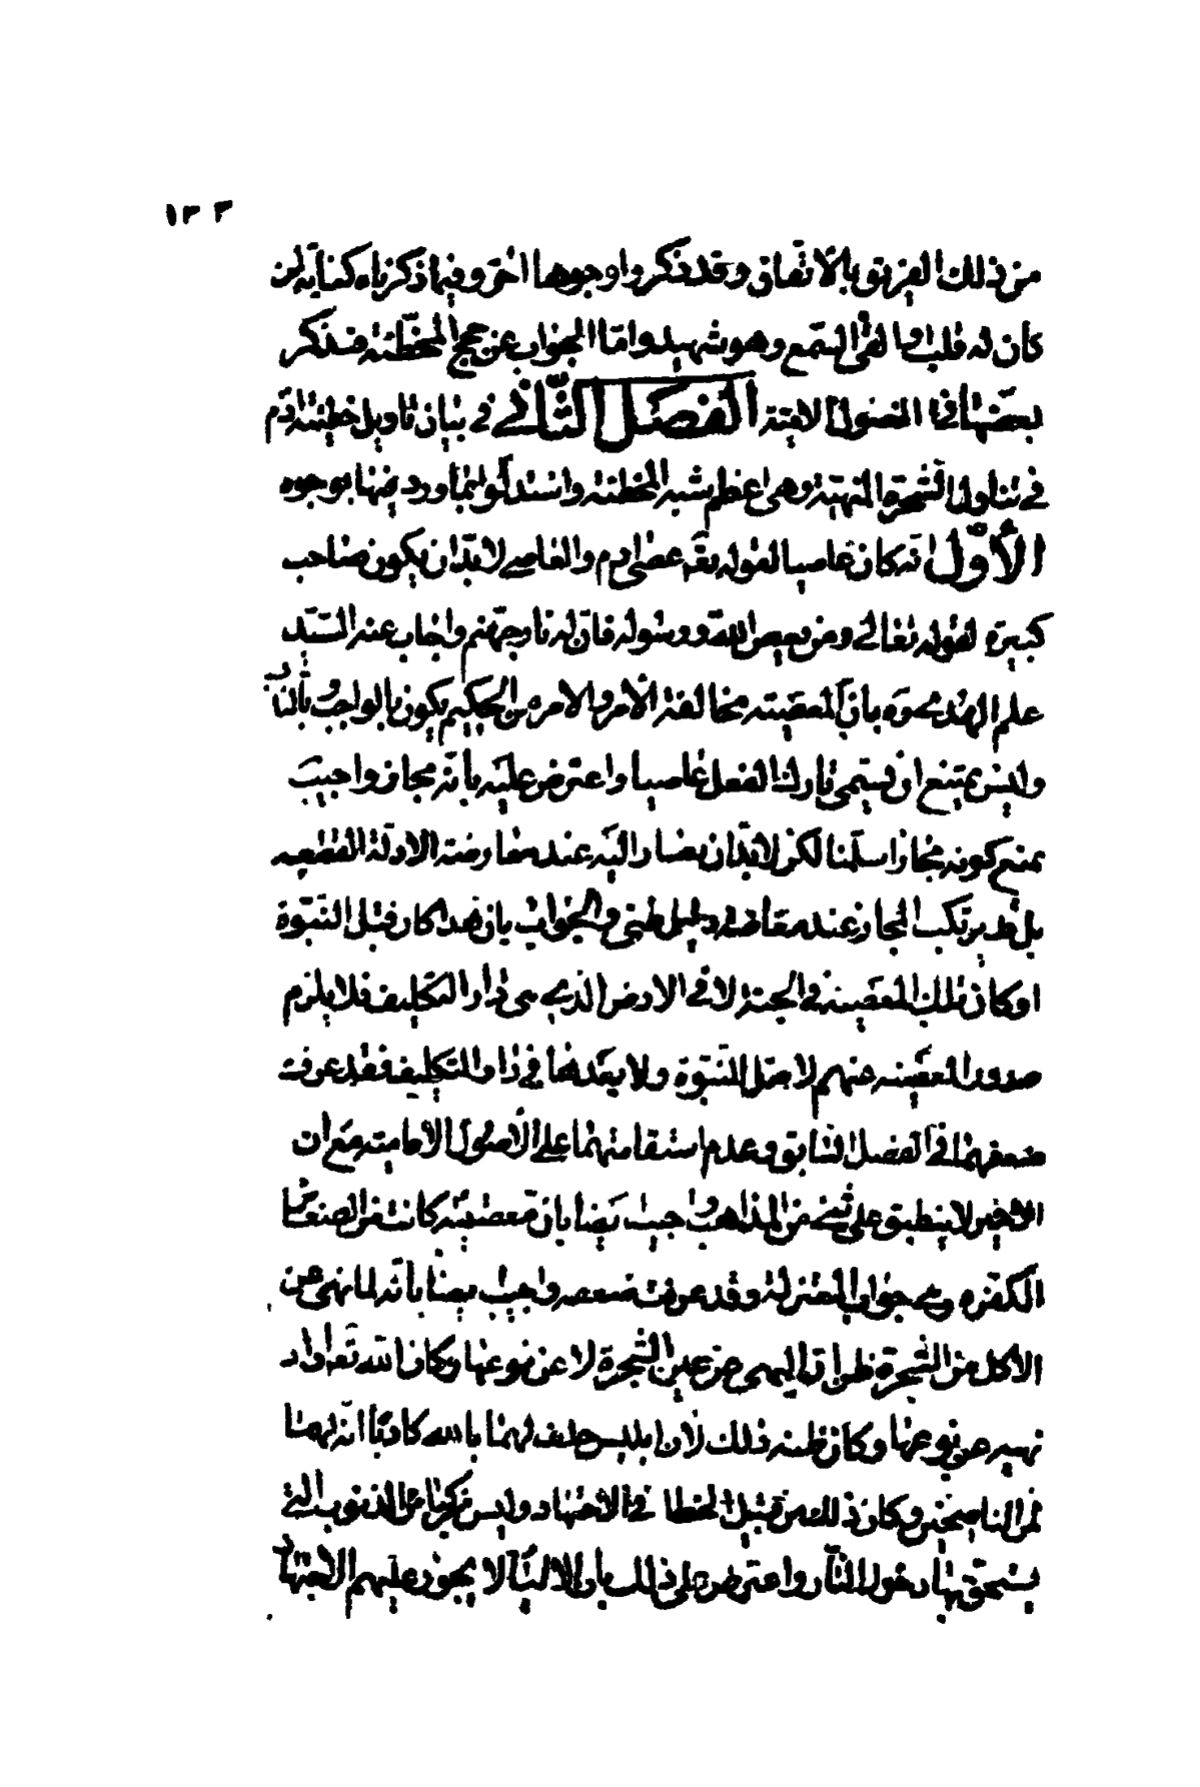 ١٣٣
من ذلك الفريق بالاتفاق وقد ذكروا وجوها اخر وفيما ذكرناه كفاية لمن
كان له قلب او القى السمع وهو شهيد واما الجواب عن حجج المخطئة فنذكر
بعضها في الفصول الاتية الفصل الثاني في بيان تاويل خطيئة ادم
في تناول الشجرة المنهية وهي اعظم شبه المخطئة واستدلوا بما ورد فيها بوجوه
الأوّل انه كان عاصيا لقوله تعه عصى ادم والعاصي لابدّ ان يكون صاحب
كبيرة لقوله تعالى ومن يعص الله ورسوله فان له نار جهنم واجاب عنه السيّد
علم الهدى بانّ المعصية مخالفة الأمر والامر من الحكيم يكون بالواجب وبالندب
وليس يمتنع ان يسمى تارك النفل عاصيا واعترض عليه بانه مجاز واجيب
بمنع كونه مجازا سلمنا لكن لابدّ ان يصار اليه عند معارضة الادلة القطعيه
بل قد يرتكب المجاز عند معارضة دليل ظنى والجواب بان هذا كان قبل النبوّة
او كان تلك المعصية في الجنة لا في الارض الذي هي دار التكليف فلا يلزم
صدور المعصية عنهم لا قبل النبوّة ولا بعدها في دار التكليف فقد عرفت
ضعفهما في الفصل السابق وعدم استقامتهما على الاصول الامامية مع ان
الاخير لا ينطبق على شيء من المذاهب واجيب ايضا بان معصيته كانت من الصغائر
المكفره وهي جواب المعتزلة وقد عرفت ضعفه واجيب ايضا بانه لما نهى عن
الأكل من الشجرة ظن ان النهى عن عين الشجرة لا عن نوعها وكان الله تعه اراد
نهيه عن نوعها وكان ظنه ذلك لان ابليس حلف لهما بالله كاذبا انه لهما
لمن الناصحين وكان ذلك من قبيل الخطا في الاجتهاد وليس من كبائر الذنوب التي
يستحق بها دخول النار واعترض على ذلك بان الانبياء لا يجوز عليهم الاجتهاد